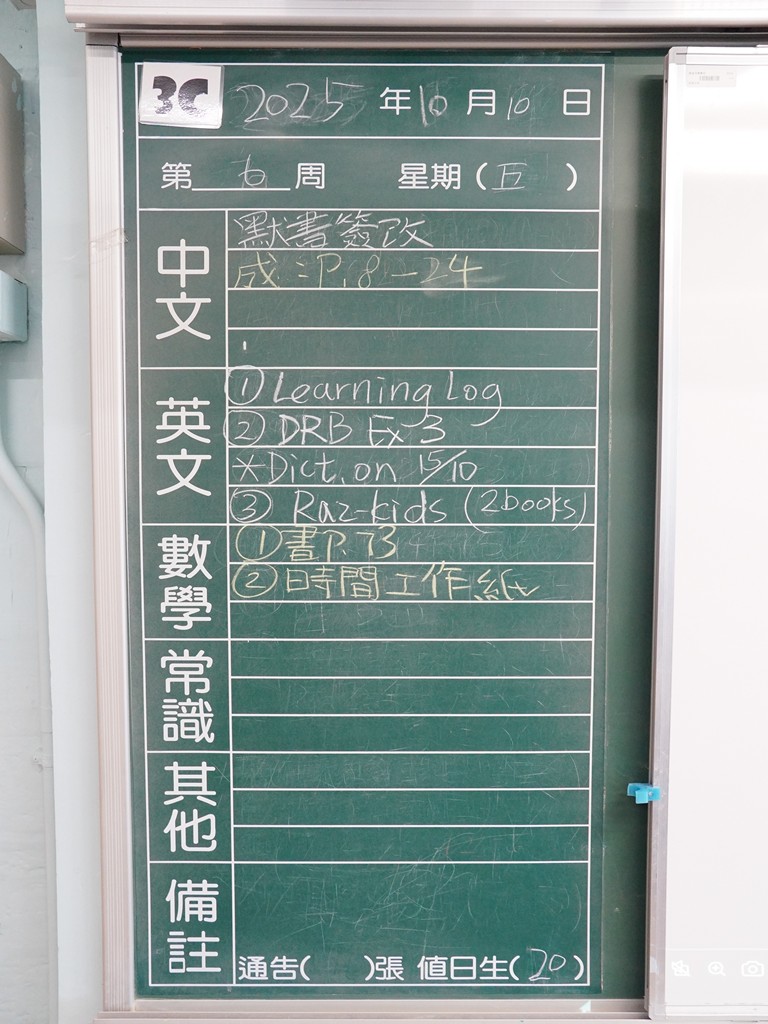 3C 2025 年 10 月 10 日
第 六 周 星期 ( 五 )
中文
默書簽改
成:P.8-24
英文
① Learning Log
② DRB Ex 3
*Dict. on 15/10
③ Raz-kids (2books)
數學
① 書P.73
② 時間工作紙
常識
其他
備註
通告( )張 值日生( 20 )